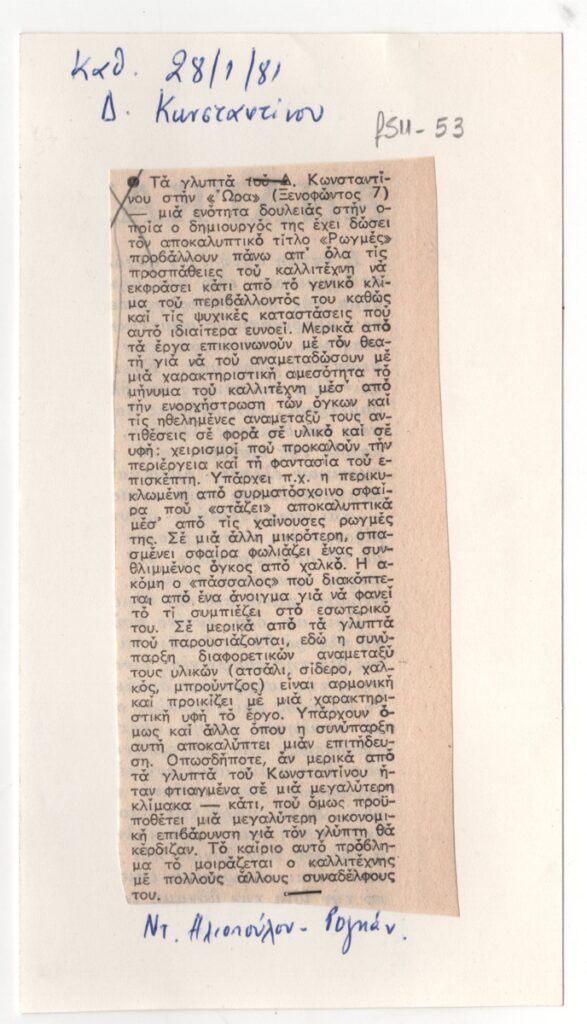 Καθ. 28/1/81
Δ. Κωνσταντίνου
PSU-53
● Τά γλυπτά τού Δ. Κωνσταντί-
νου στήν «Ώρα» (Ξενοφώντος 7)
— μιά ενότητα δουλειάς στήν ο-
ποία ο δημιουργός της έχει δώσει
τόν αποκαλυπτικό τίτλο «Ρωγμές»
προβάλλουν πάνω απ' όλα τίς
προσπάθειες τού καλλιτέχνη νά
εκφράσει κάτι από τό γενικό κλί-
μα τού περιβάλλοντός του καθώς
καί τίς ψυχικές καταστάσεις πού
αυτό ιδιαίτερα ευνοεί. Μερικά από
τά έργα επικοινωνούν μέ τόν θεα-
τή γιά νά τού αναμεταδώσουν μέ
μιά χαρακτηριστική αμεσότητα τό
μήνυμα τού καλλιτέχνη μέσ' από
τήν ενορχήστρωση τών όγκων καί
τίς ηθελημένες αναμεταξύ τους αν-
τιθέσεις σέ φορά σέ υλικό καί σέ
υφή: χειρισμοί πού προκαλούν τήν
περιέργεια καί τή φαντασία τού ε-
πισκέπτη. Υπάρχει π.χ. η περικυ-
κλωμένη από συρματόσχοινο σφαί-
ρα πού «στάζει» αποκαλυπτικά
μέσ' από τίς χαίνουσες ρωγμές
της. Σέ μιά άλλη μικρότερη, σπα-
σμένει σφαίρα φωλιάζει ένας συν-
θλιμμένος όγκος από χαλκό. Η α-
κόμη ο «πάσσαλος» πού διακόπτε-
ται από ένα άνοιγμα γιά νά φανεί
τό τί συμπιέζει στό εσωτερικό
του. Σέ μερικά από τά γλυπτά
πού παρουσιάζονται, εδώ η συνύ-
παρξη διαφορετικών αναμεταξύ
τους υλικών (ατσάλι, σίδερο, χαλ-
κός, μπρούντζος) είναι αρμονική
καί προικίζει μέ μιά χαρακτηρι-
στική υφή τό έργο. Υπάρχουν ό-
μως καί άλλα όπου η συνύπαρξη
αυτή αποκαλύπτει μιάν επιτήδευ-
ση. Οπωσδήποτε, άν μερικά από
τά γλυπτά τού Κωνσταντίνου ή-
ταν φτιαγμένα σέ μιά μεγαλύτερη
κλίμακα — κάτι, πού όμως προϋ-
ποθέτει μιά μεγαλύτερη οικονομι-
κή επιβάρυνση γιά τόν γλύπτη θά
κέρδιζαν. Τό καίριο αυτό πρόβλη-
μα τό μοιράζεται ο καλλιτέχνης
μέ πολλούς άλλους συναδέλφους
του.
Ντ. Ηλιοπούλου - Ρογκάν.